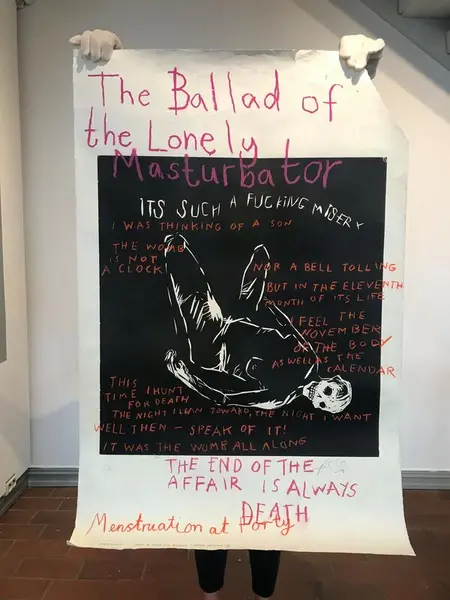 The Ballad of
the Lonely
Masturbator
ITS SUCH A FUCKING MISERY
I WAS THINKING OF A SON
THE WOMB
IS NOT
A CLOCK
NOR A BELL TOLLING
BUT IN THE ELEVENTH
MONTH OF ITS LIFE
I FEEL THE
NOVEMBER
OF THE BODY
AS WELL AS THE
CALENDAR
THIS
TIME I HUNT
FOR DEATH
THE NIGHT I LEAN TOWARD, THE NIGHT I WANT
WELL THEN - SPEAK OF IT!
IT WAS THE WOMB ALL ALONG
THE END OF THE
AFFAIR IS ALWAYS
DEATH
Menstruation at Forty